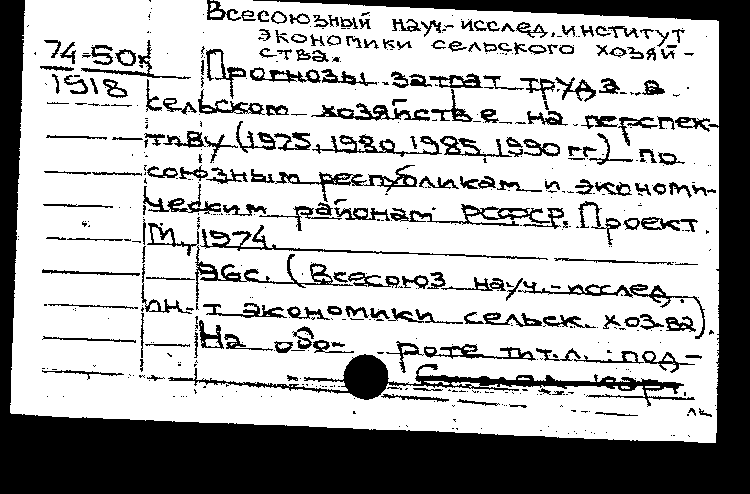 Всесоюзный науч.-исслед. институт
экономики сельского хозяй-
ства.
74-50к
1918
Прогнозы затрат труда в
сельском хозяйстве на перспек-
тиву (1975, 1980, 1985, 1990 гг.) по
союзным республикам и экономи-
ческим районам РСФСР. Проект.
М., 1974.
96с. (Всесоюз науч.-исслед.
ин-т экономики сельск. хоз-ва).
На обо- роте тит.л.: под-